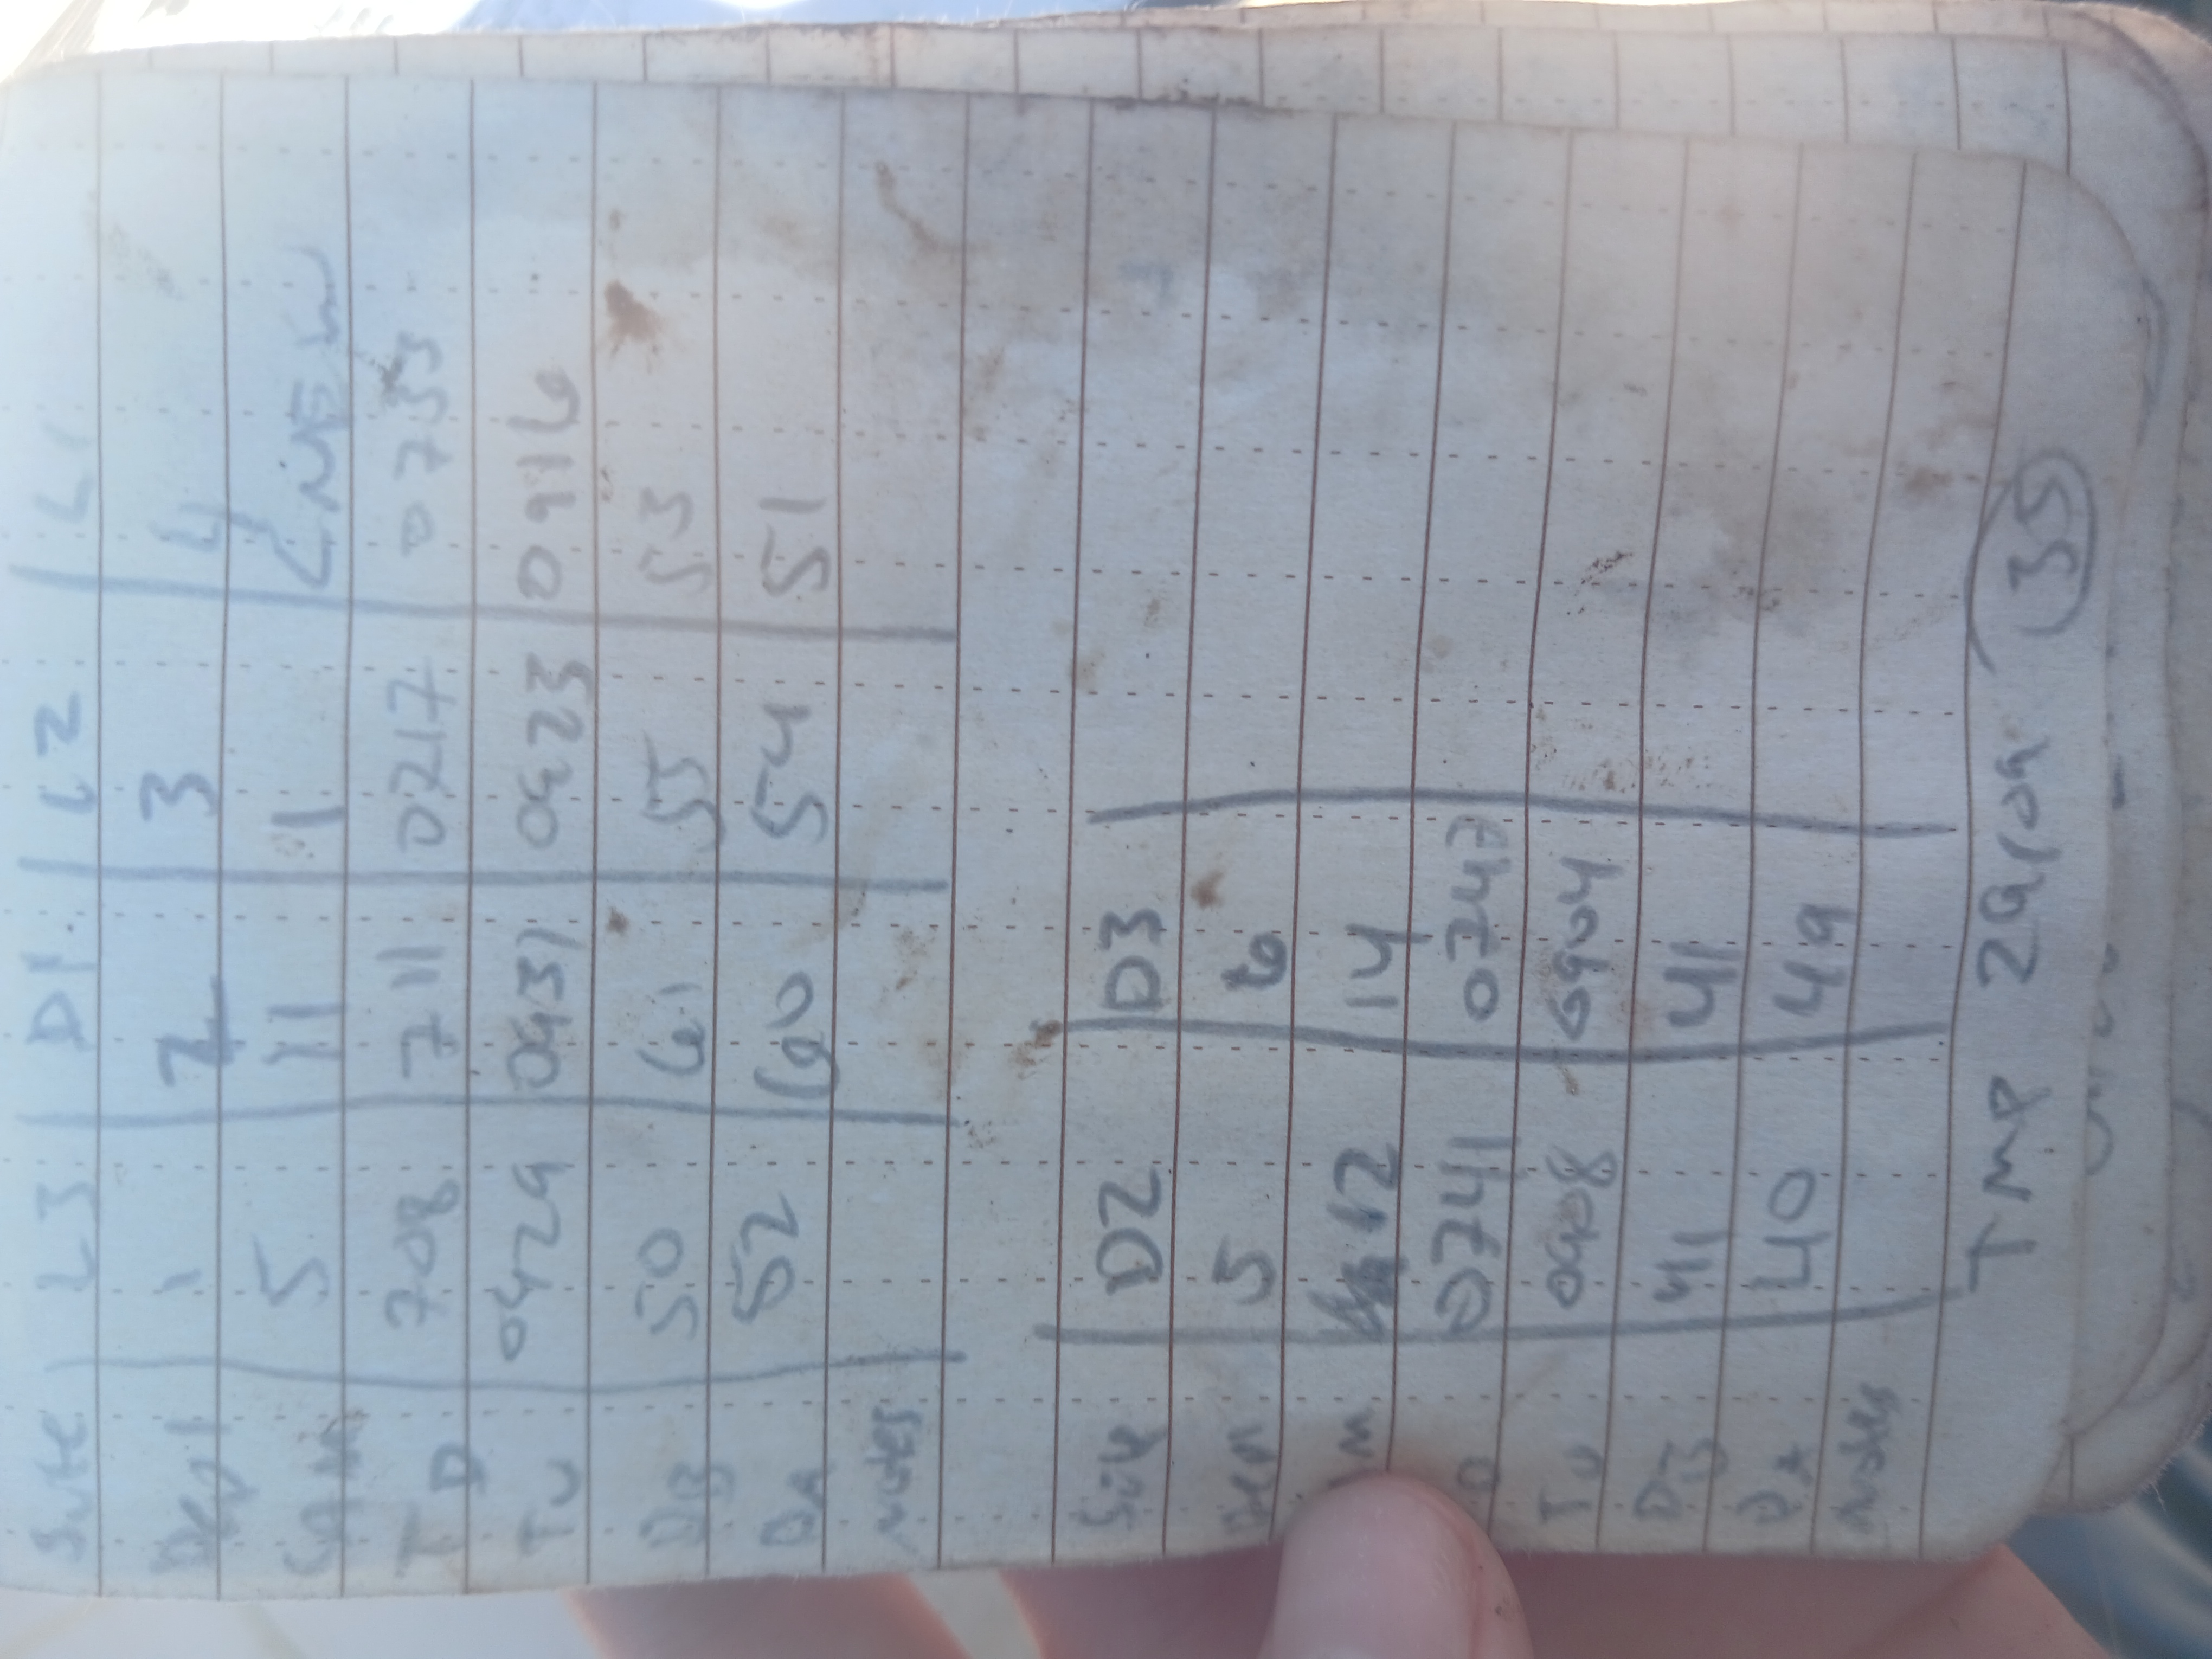 Site L3 D1 L2 L1
Depl 1 2 3 4
CAM 5 11 1 LNEW
TD 708 711 0717 0733
TU 0929 0931 0923 0916
DB 50 61 55 53
DA 52 60 54 51
Notes
Site D2 D3
Depl 5 6
M 12 14
D 0741 0747
TU 0908 0904
DB 41 41
DA 40 49
Notes
TMP 29/09 35